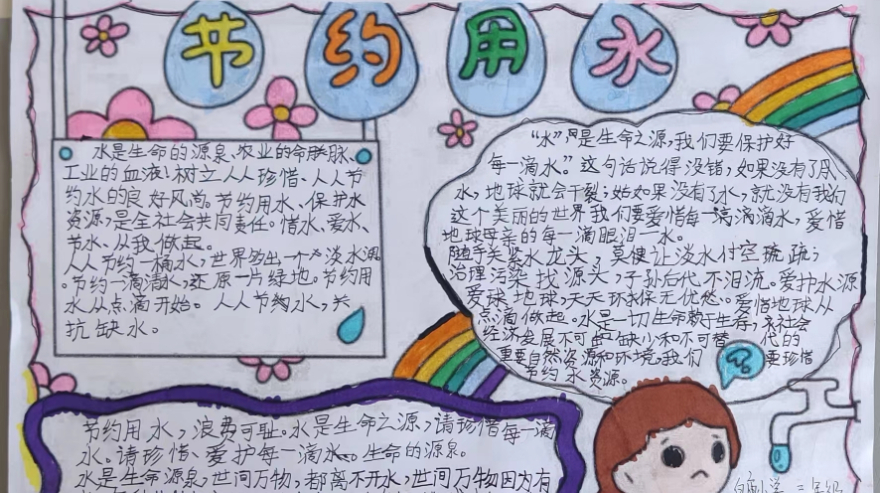 节约用水
水是生命的源泉、农业的命脉、
工业的血液!树立人人珍惜、人人节
约水的良好风尚。节约用水、保护水
资源,是全社会共同责任。惜水、爱水、
节水、从我做起。
人人节约一桶水,世界多出一个淡水湖
。节约一滴清水,还原一片绿地。节约用
水从点滴开始。人人节约水,共
抗缺水。
“水”,是生命之源,我们要保护好
每一滴水。”这句话说得没错,如果没有了
水,地球就会干裂;如果没有了水,就没有我们
这个美丽的世界我们要爱惜每一滴滴水,爱惜
地球母亲的每一滴眼泪—水。
随手关紧水龙头,莫使让淡水付空流
治理污染找源头,子孙后代不泪流。爱护水源
爱球地球,天天环保无优然。爱惜地球从
点滴做起。水是一切生命赖于生存,社会
经济发展不可缺少和不可替代的
重要自然资源和环境,我们要珍惜
节约水资源。
节约用水,浪费可耻。水是生命之源,请珍惜每一滴
水。请珍惜、爱护每一滴水。生命的源泉。
水是生命源泉,世间万物,都离不开水,世间万物因为有